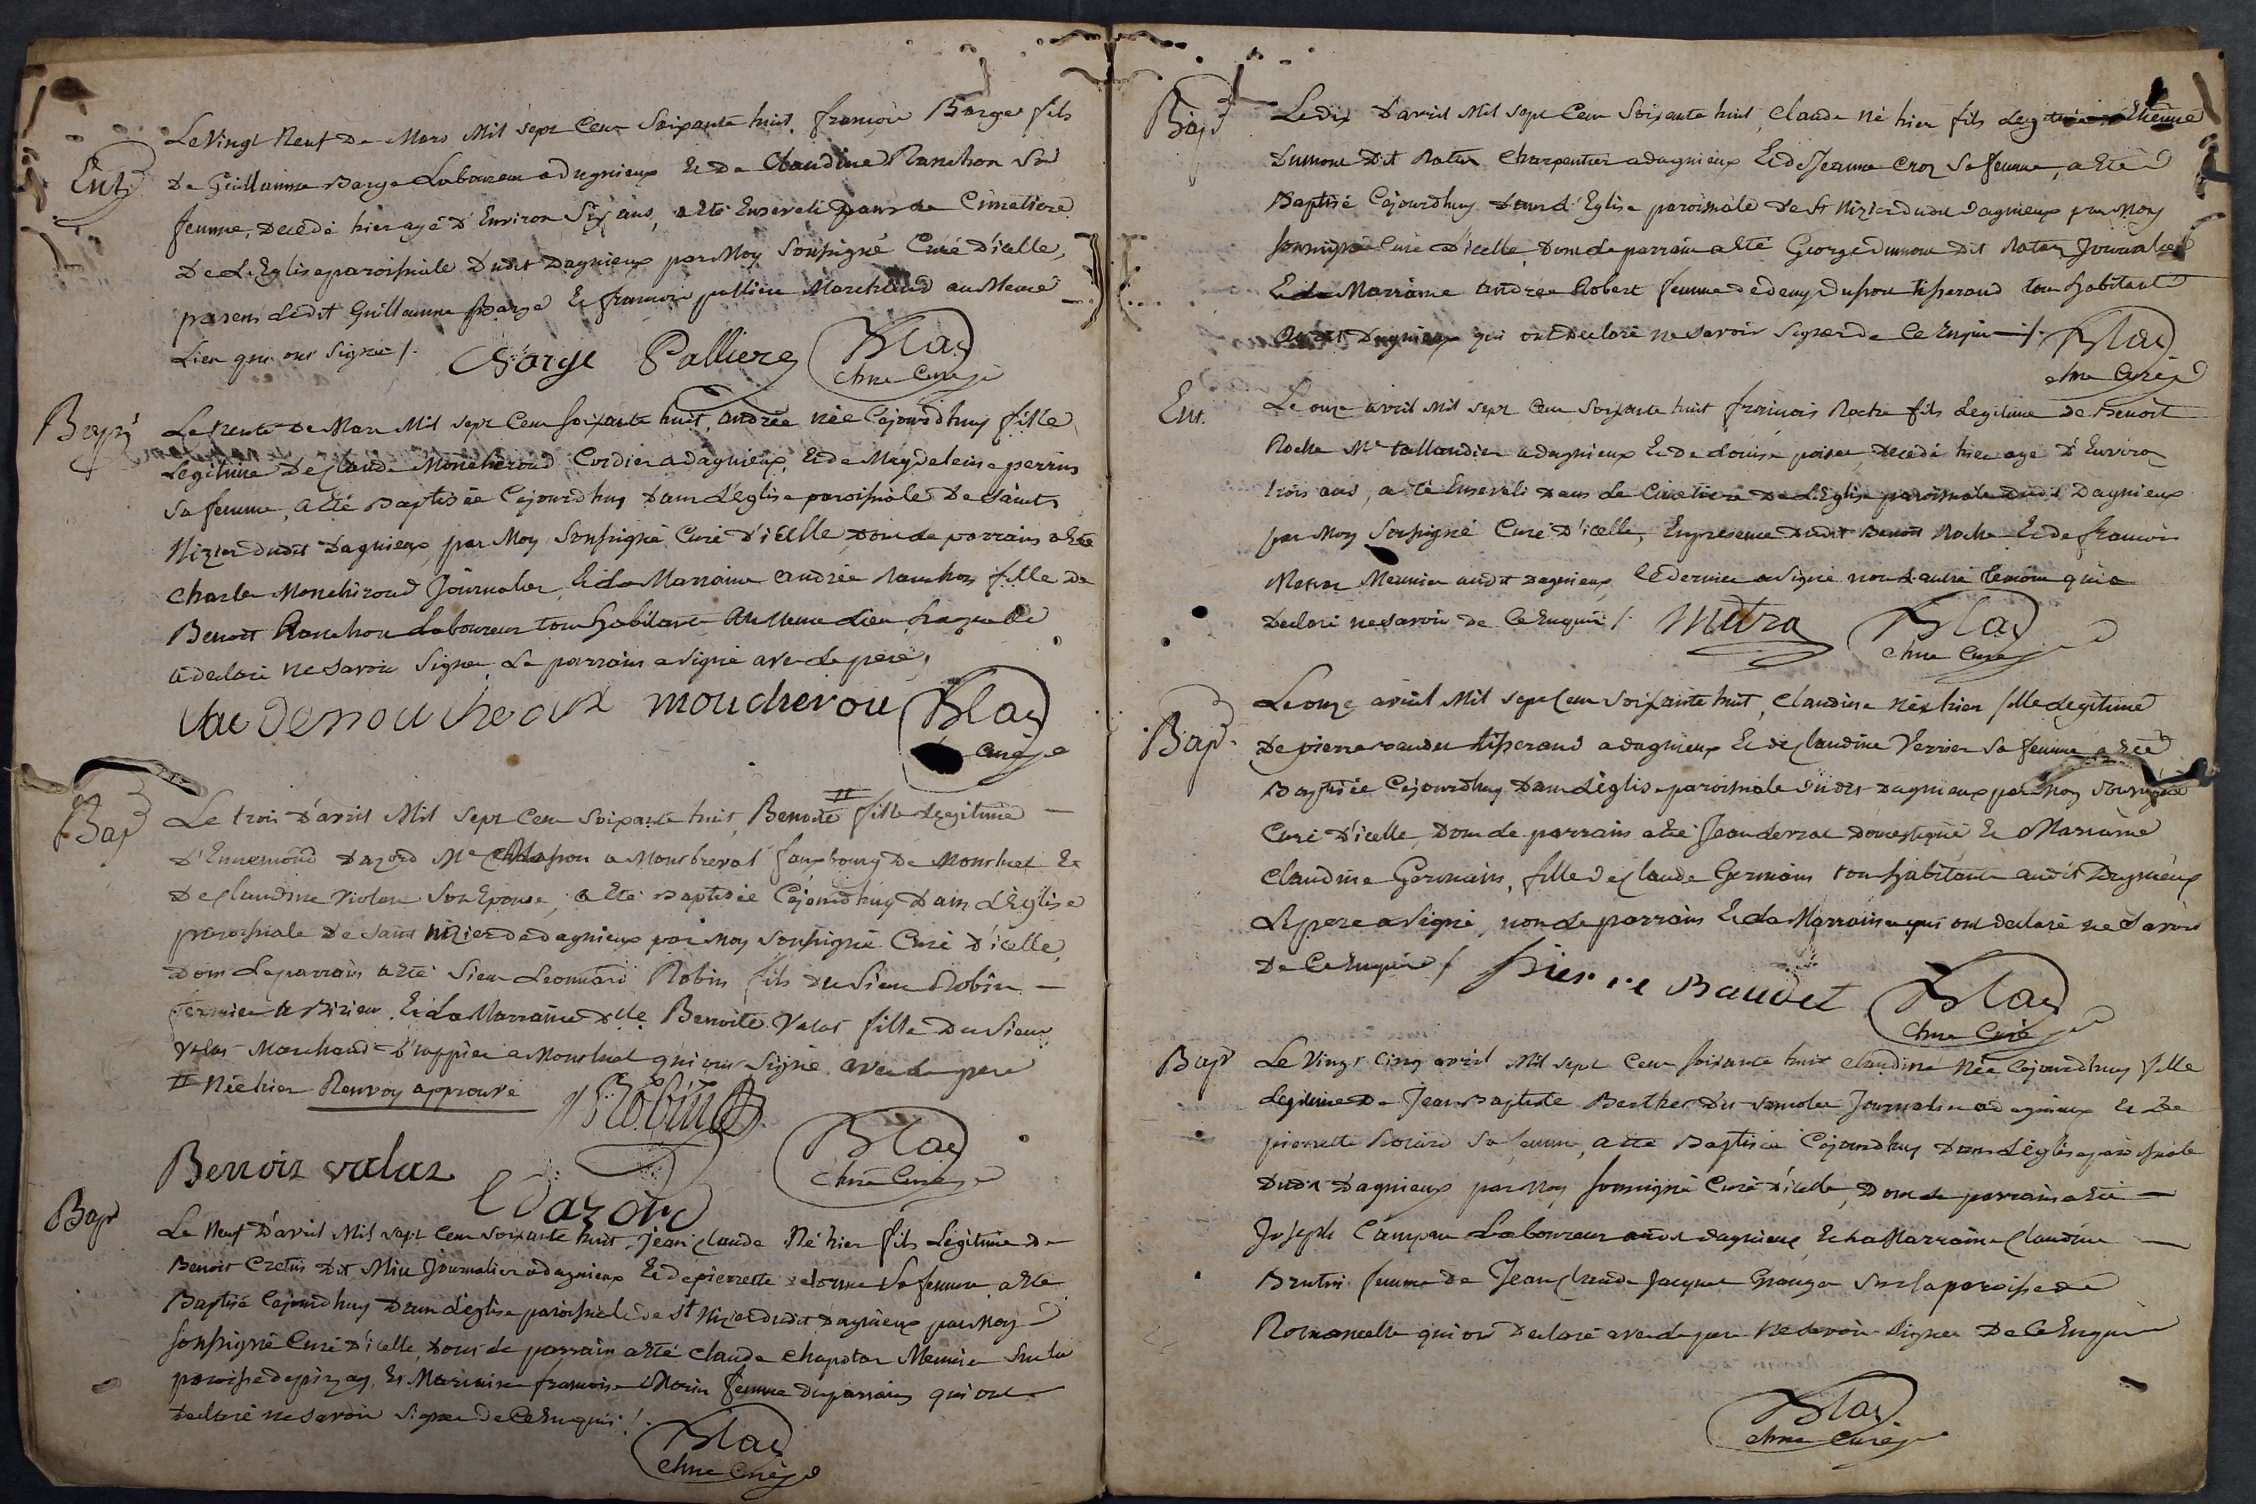 Ent
Le Vingt Neuf De Mars Mil sept Cent Soixante huit, francois Barge fils
De Guillaume Barge Laboureur a dagnieux Et De Claudine Ranchon Sa
femme, Decedé hier agé D'Environ Six ans, a Eté Enseveli dans Le Cimetiere
De L'Eglise paroissiale Dudit Dagnieux par Moy Soussigné Curé D'icelle,
presens Ledit Guillaume Barge Et francois palliere Marchand au Meme
Lieu qui ont Signé /.
Barge Palliere Blac
Curé
Bapt
Le trente De Mars Mil sept Cent soixante huit, andrée née Cejourdhuy fille
Legitime De Claude Moncheroud Cordier a dagnieux, Et De Magdeleine perrin
Sa femme, a Eté Baptisée Cejourdhuy Dans L'eglise paroissiale De Saint
Nizier dudit Dagnieux, par Moy Soussigné Curé D'icelle, dont Le parrain a Eté
Charle Journalier, Et La Marraine andrée Ranchon fille De
Benoit Ranchon Laboureur tous habitants Au Meme Lieu Laquelle
a declaré ne Savoir Signer Le parrain a Signé avec Le pere,
moucherou Blac
Curé
Bap
Le trois D'avril Mil Sept Cent Soixante huit, Benoite # fille Legitime
D'Ennemond Dazord Me Masson a Montbreval fauxbourg De Montluel Et
De Claudine Son Epouse, a Eté Baptisée Cejourdhuy Dans L'Eglise
paroissiale De Saint Nizier De dagnieux par Moy Soussigné Curé D'icelle,
Dont Le parrain a Eté Sieur Leonnard Robin fils Du Sieur Robin
fermier a Et La Marraine Dlle Benoite Valat fille Du Sieur
Valat Marchand Drappier a Montluel qui ont Signé avec Le pere
# Née hier Renvoy approuvé
Robin
Blac
Curé
Benoit valat
E Dazord
Bapt
Le Neuf D'avril Mil Sept Cent Soixante huit Jean Claude Né hier fils Légitime De
Benoit Cretin Dit Journalier a dagnieux Et De pierrette Sa femme, a Eté
Baptisé Cejourdhuy Dans L'église paroissiale De St Nizier Dudit Dagnieux par Moy
Soussigné Curé D'icelle, Dont Le parrain a Eté Claude Chapotar Meunier Sur La
paroisse De pizay, Et Marraine francoise Morin femme Du parrain qui ont
Declaré ne Savoir Signer De Ce Enquis /.
Blac
Curé
Bapt
Le dix D'avril Mil Sept Cent Soixante huit, Claude Né hier fils Legitime Etienne
Dumont Dit Ratar Charpentier a dagnieux Et De Jeanne Croz Sa femme, a Eté
Baptisé Cejourdhuy Dans L'Eglise paroissiale De St Nizier dudit Dagnieux par Moy
Soussigné Curé D'icelle, Dont Le parrain a Eté George Dumont Dit Ratar Journalier
Et La Marraine andrée Robert femme De denys Tisserand tous habitants
audit Dagnieux qui ont Declaré ne Savoir Signer De Ce Enquis /.
Blac
Curé
Ent.
Le onze avril Mil sept Cent Soixante huit francois Roche fils Legitime De Benoit
Roche Me taillandier a dagnieux Et De Louise Decedé hier agé D'Environ
trois ans, a eté Enseveli Dans Le Cimetiere De L'Eglise paroissiale Dudit Dagnieux
par Moy Soussigné Curé D'icelle, En presence Dudit Benoit Roche Et De francois
Meunier audit Dagnieux, Ce Dernier a Signé non L'autre temoin qui a
Declaré ne Savoir De Ce Enquis /.
Mitra Blac
Curé
Bap
Le onze avril Mil Sept Cent Soixante huit, Claudine née hier fille Legitime
De pierre Baudet tisserand a dagnieux Et De Claudine Verrier Sa femme a Eté
Baptisée Cejourdhuy Dans L'église paroissiale Dudit Dagnieux par Moy Soussigné
Curé D'icelle, Dont Le parrain a Eté Jean Domestique Et Marraine
Claudine Germain, fille De Claude Germain tous habitants audit Dagnieux
Le pere a Signé, non Le parrain Et La Marraine qui ont declaré ne Savoir
De Ce Enquis /
pierre Baudet Blac
Curé
Bapt
Le Vingt Cinq avril Mil Sept Cent Soixante huit Claudine Née Cejourdhuy fille
Legitime De Jean Baptiste Berthet Dit Journalier a dagnieux Et De
pierrette Sa femme, a Eté Baptisée Cejourdhuy Dans L'église paroissiale
Dudit Dagnieux par Moy Soussigné Curé D'icelle, Dont Le parrain a Eté
Joseph Laboureur audit dagnieux Et La Marraine Claudine
femme De Jean Claude Jacquet Granger Sur La paroisse De
Romanelle qui ont Declaré avec Le pere Ne Savoir Signer De Ce Enquis
Blac
Curé